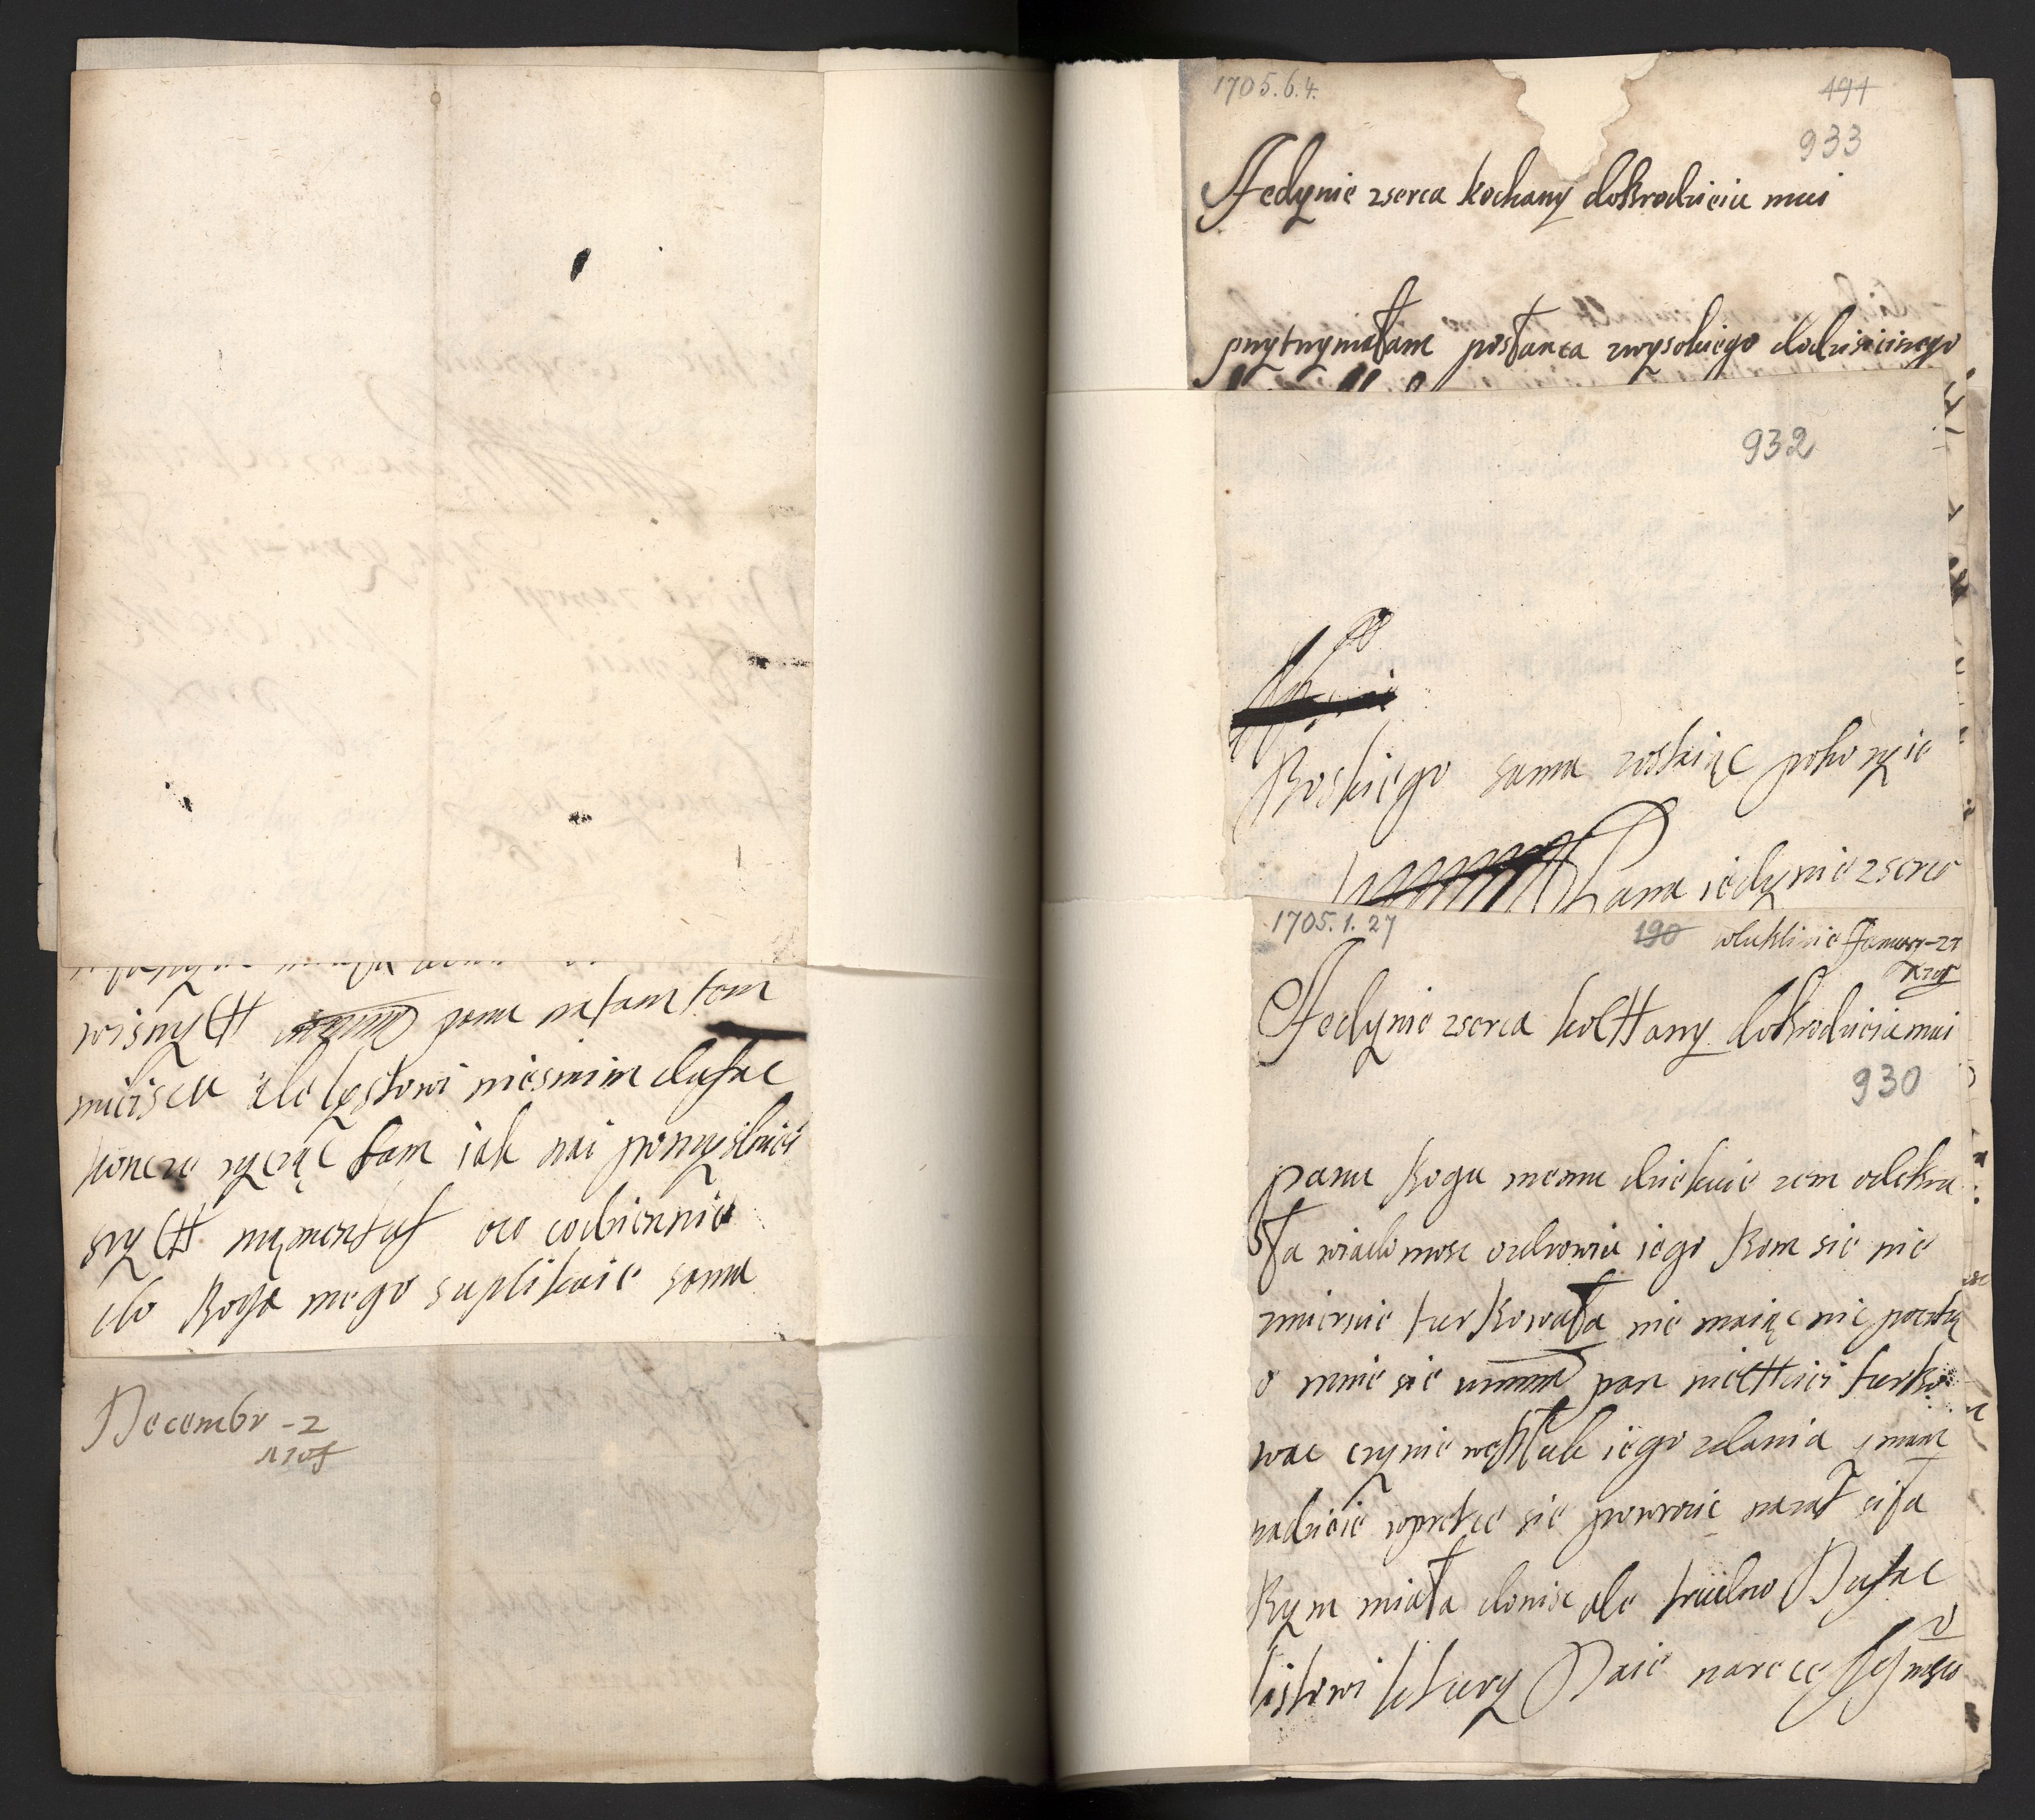 wisnyCH panu natamtem
mieiscu ale lystowi niesmim dufac
koncze zycząc tam iak nai pomyslniei
szyCH mymentuf oco codziennie
do Boga mego suplikuie sama
Decembr - 2
1705
1705.6.4.
191
933
Jedynie zserca kochany dobrodzieiu mui
przytrzymałam posłanca zwysokiego dodzisieinego
932
Boskiego sama zostaiąc pokorzie
Pana iedynie zserc
1705.1.27
190 January - 27
1705
Jedynie zserca koCHany dobrodzieiu mui
930
panu Bogu memu dziekuie zem odebra
ła wiadomosc ozdrowiu iego Bom sie nie
zmiernie turbowała nie maiąc nic pocztą
o mnie sie pan nieCHciei turbo
wac czynie iego zdania y mam
nadzieie sie powrocic nazat siła
Bym miała donisc ale trudno Dufac
listowi ktury Daie narece